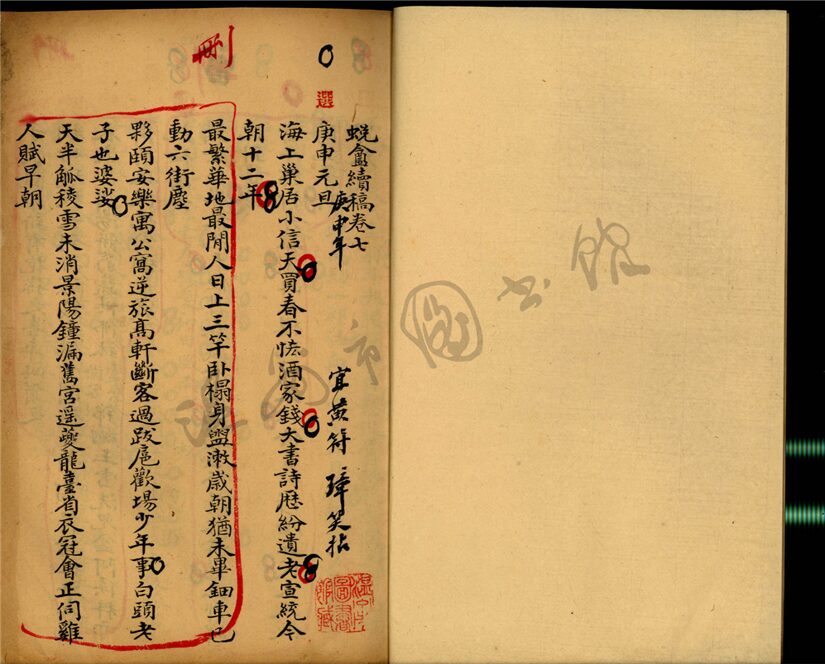 蜕盦續稿卷七
庚申年
宜黄符璋笑拈
選
庚申元旦
海上巢居小信天買春不怯酒家錢大書詩歴紛遺老宣統今
朝十二年
刪
最繁華地最閒人日上三竿卧榻身盥漱歲朝猶未畢鈿車已
動六街塵
夥頤安樂寓公窩逆旅高軒斷客過跋扈歡場少年事白頭老
子也婆娑
天半觚稜雪未消景陽鐘漏舊宮遥夔龍臺省衣冠會正伺雞
人賦早朝
温州市圖書館藏
市圖書館